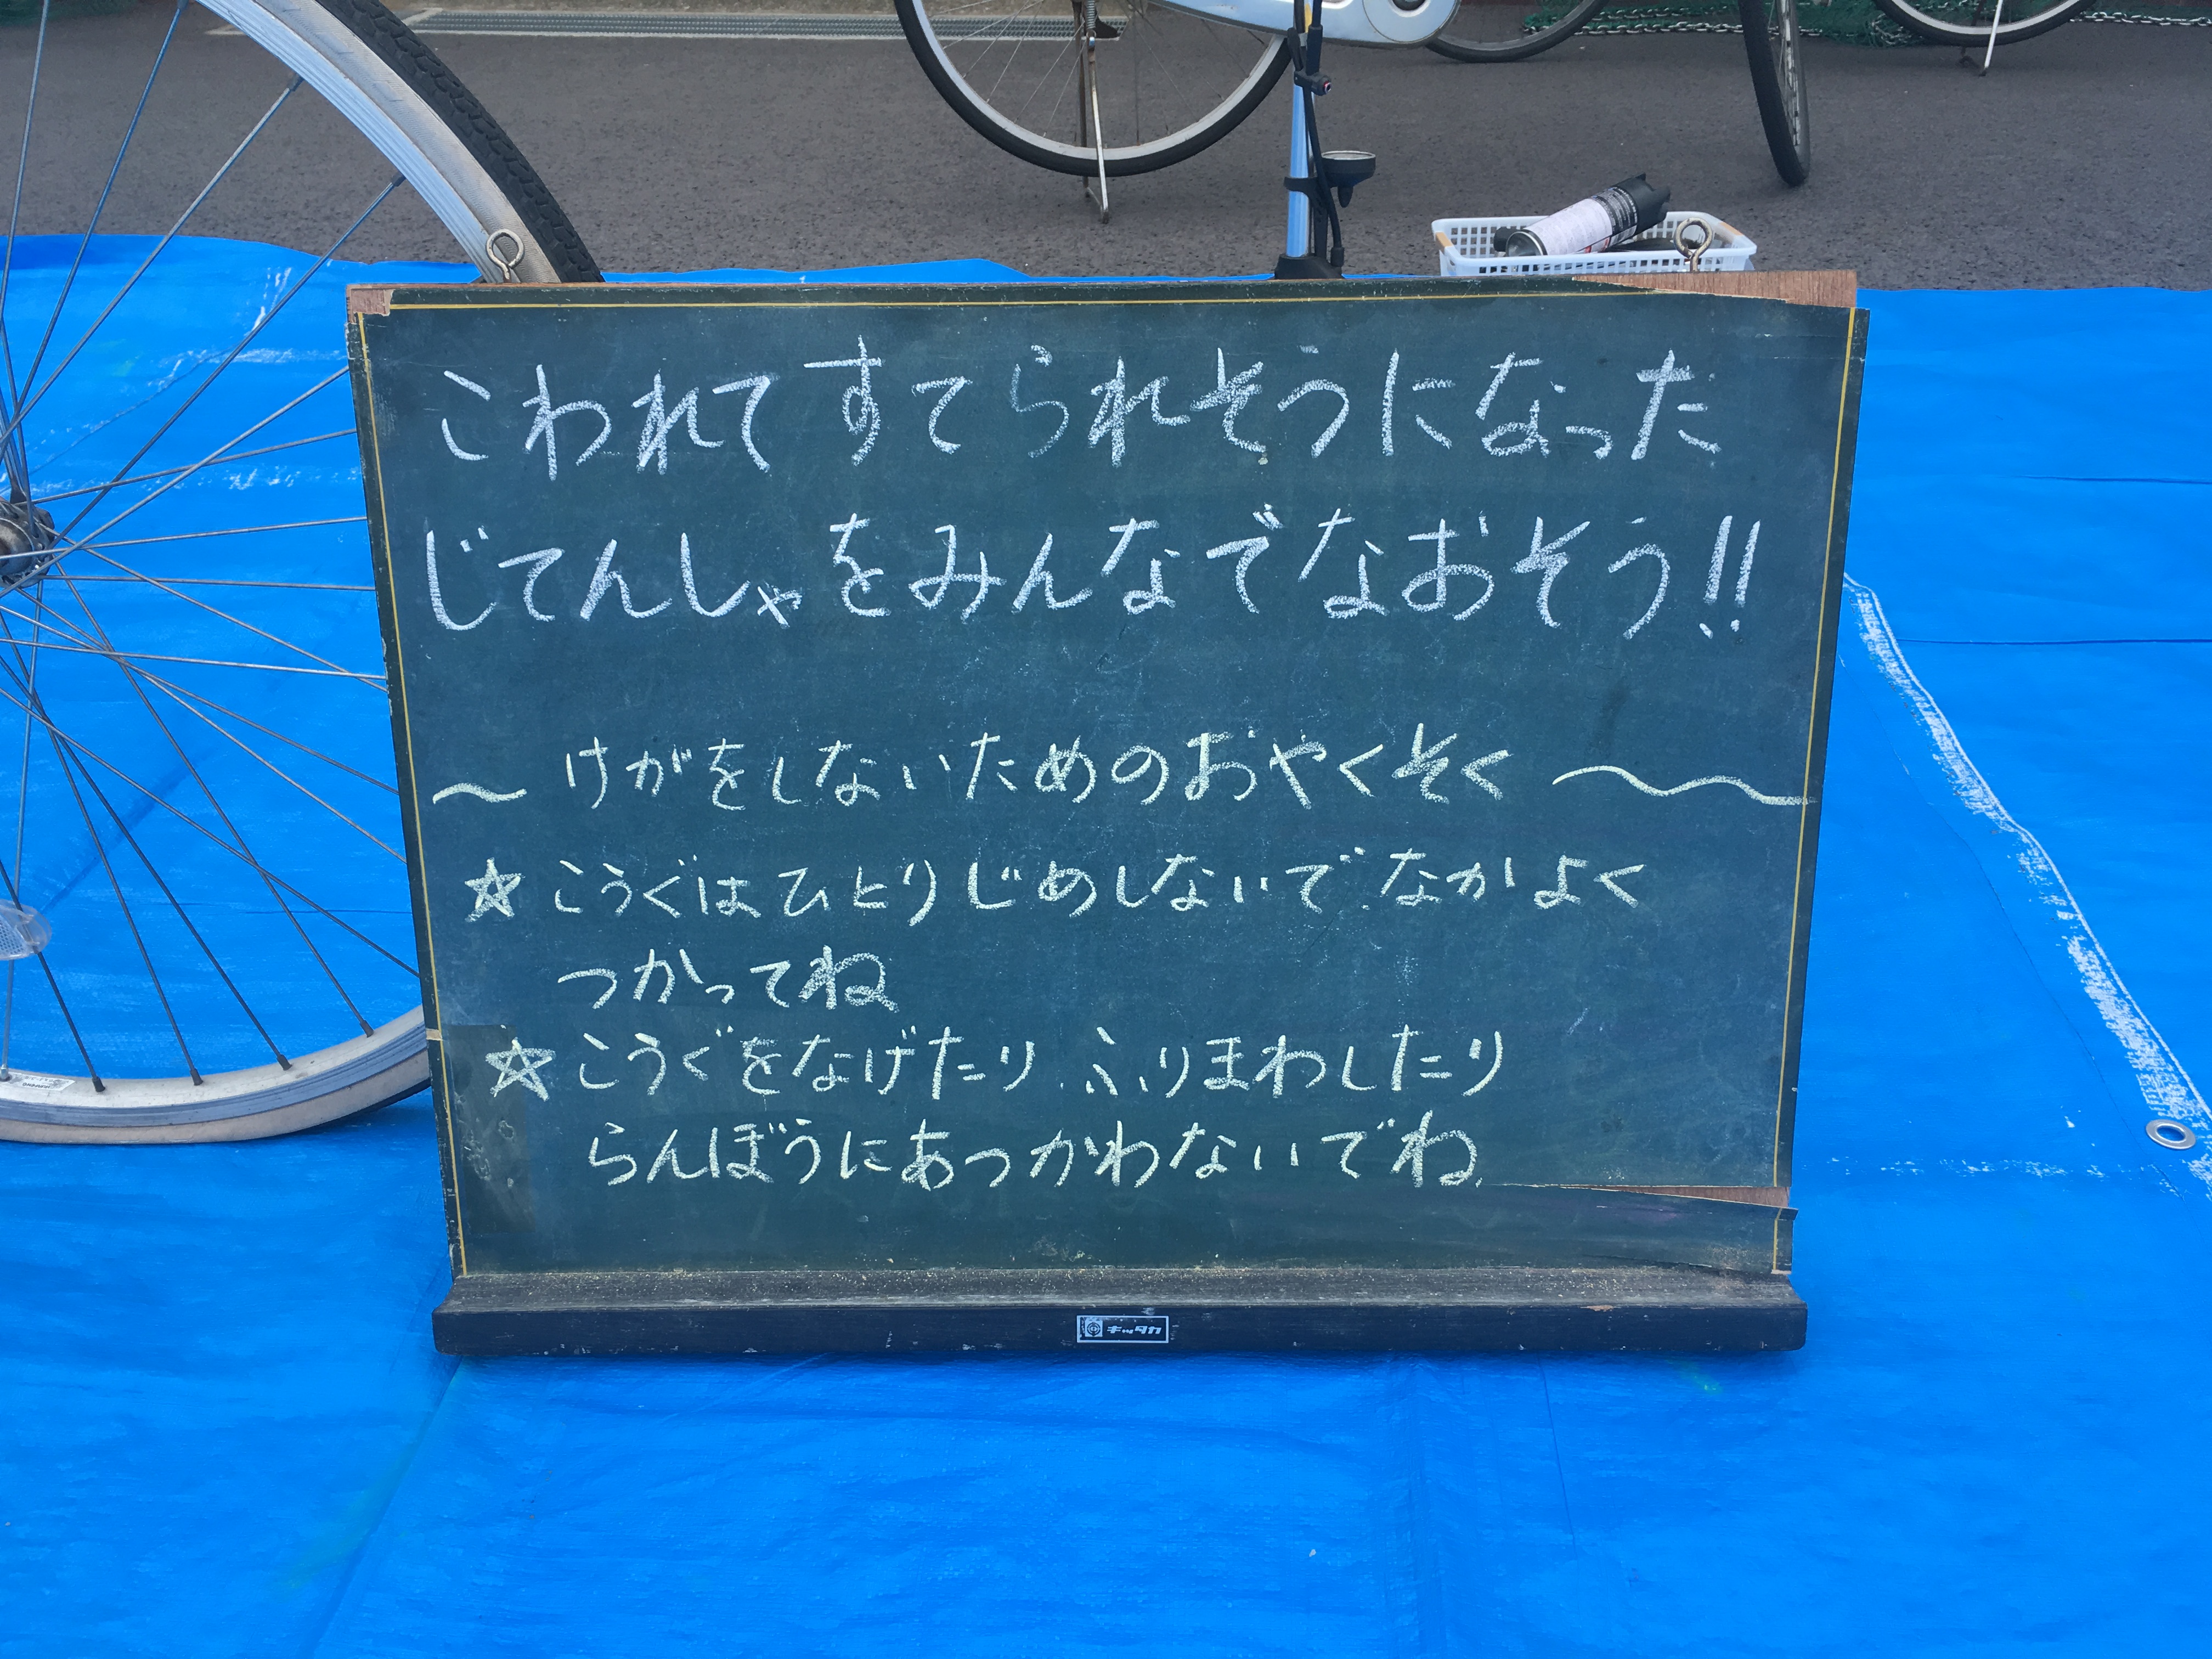 こわれてすてられそうになった
じてんしゃをみんなでなおそう!!
～ けがをしないためのおやくそく ～
☆ こうぐはひとりじめしないで なかよく
つかってね
☆ こうぐをなげたり ふりまわしたり
らんぼうにあつかわないでね
キッタカ